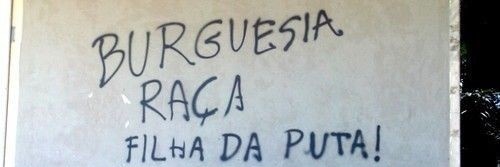 BURGUESIA
RAÇA
FILHA DA PUTA!